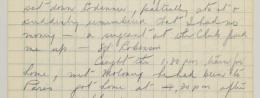 set down Dobinson, partially ate it &
suddenly remembered that I had no
money — a sergeant at the Club paid
me up — Sgt Robinson
Caught the 1.30 pm train for
home, met Molony he had been to
Paris got home at 4.30 pm after